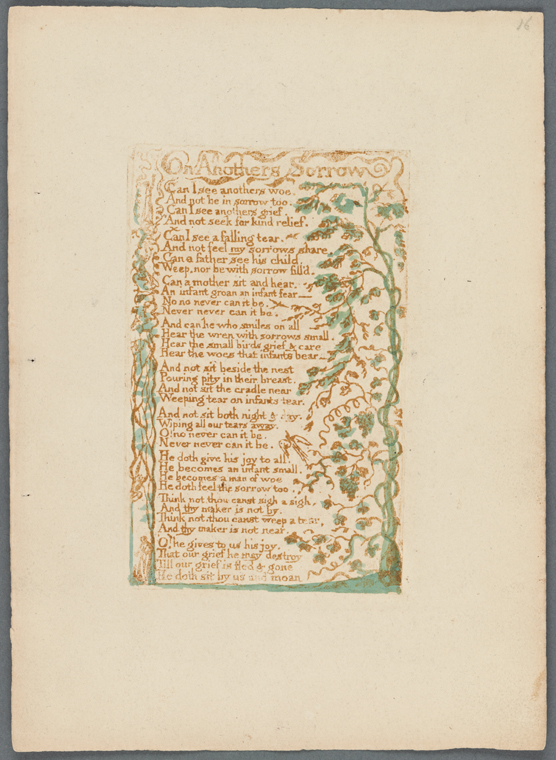 16
On Anothers Sorrow
Can I see anothers woe,
And not be in sorrow too.
Can I see anothers grief,
And not seek for kind relief.
Can I see a falling tear.
And not feel my sorrows share,
Can a father see his child,
Weep, nor be with sorrow fill'd.
Can a mother sit and hear,
An infant groan an infant fear—
No no never can it be.
Never never can it be.
And can he who smiles on all
Hear the wren with sorrows small.
Hear the small birds grief & care
Hear the woes that infants bear—
And not sit beside the nest
Pouring pity in their breast.
And not sit the cradle near
Weeping tear on infants tear.
And not sit both night & day.
Wiping all our tears away.
O! no never can it be.
Never never can it be.
He doth give his joy to all.
He becomes an infant small.
He becomes a man of woe
He doth feel the sorrow too.
Think not thou canst sigh a sigh,
And thy maker is not by.
Think not thou canst weep a tear,
And thy maker is not near
O! he gives to us his joy,
That our grief he may destroy
Till our grief is fled & gone
He doth sit by us and moan